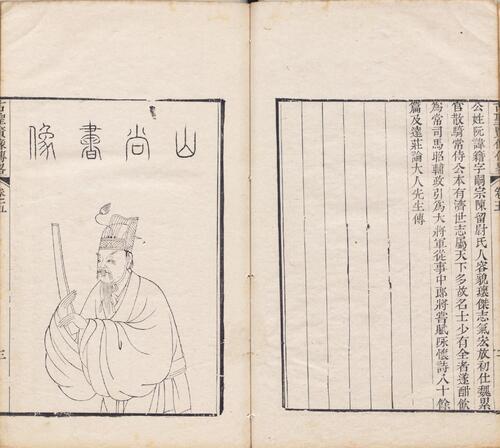 公姓阮諱籍字嗣宗陳留尉氏人容貌瓌傑志氣宏放初仕魏累
官散騎常侍公本有濟世志屬天下多故名士少有全者遂酣飲
為常司馬昭輔政引為大將軍從事中郎將嘗賦詠懷詩八十餘
篇及達莊論大人先生傳
山尚書像
古聖賢像傳畧
卷之五
三